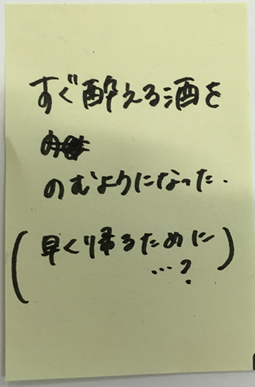 すぐ酔える酒を
のむようになった.
(早く帰るために
…?)